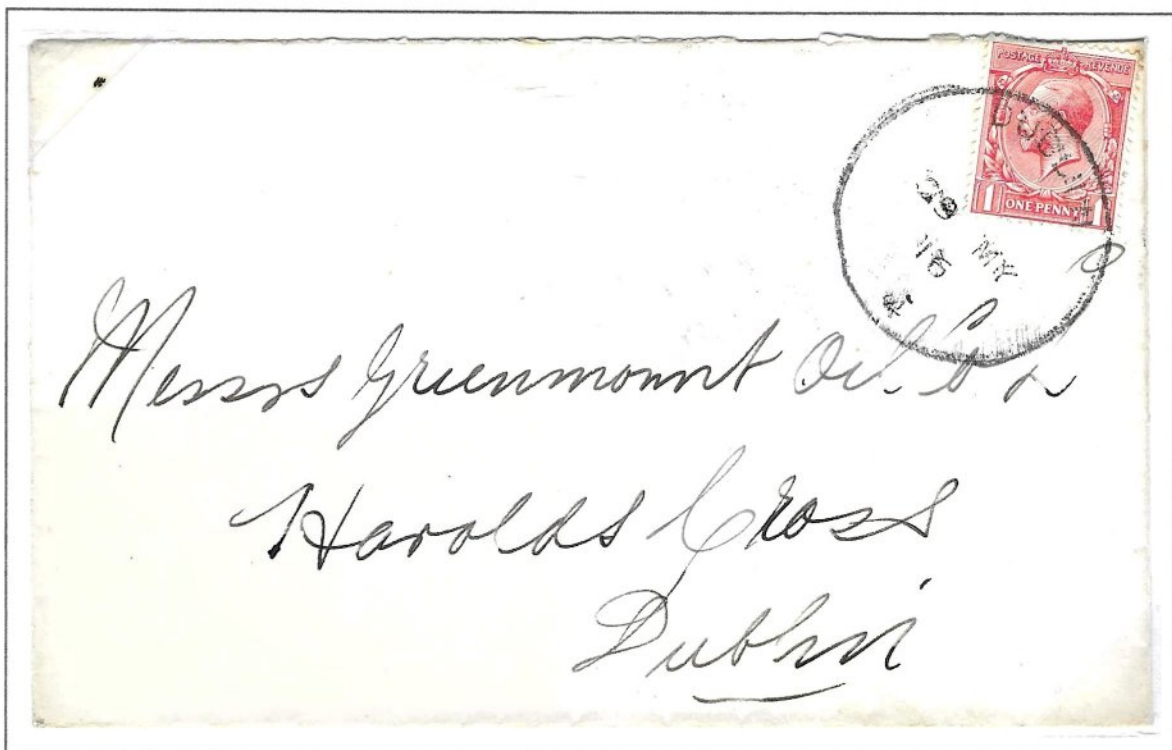 POSTAGE REVENUE
1 ONE PENNY 1
DUBLIN
29 MY
16
Messrs Greenmount Oil Co
Harolds Cross
Dublin